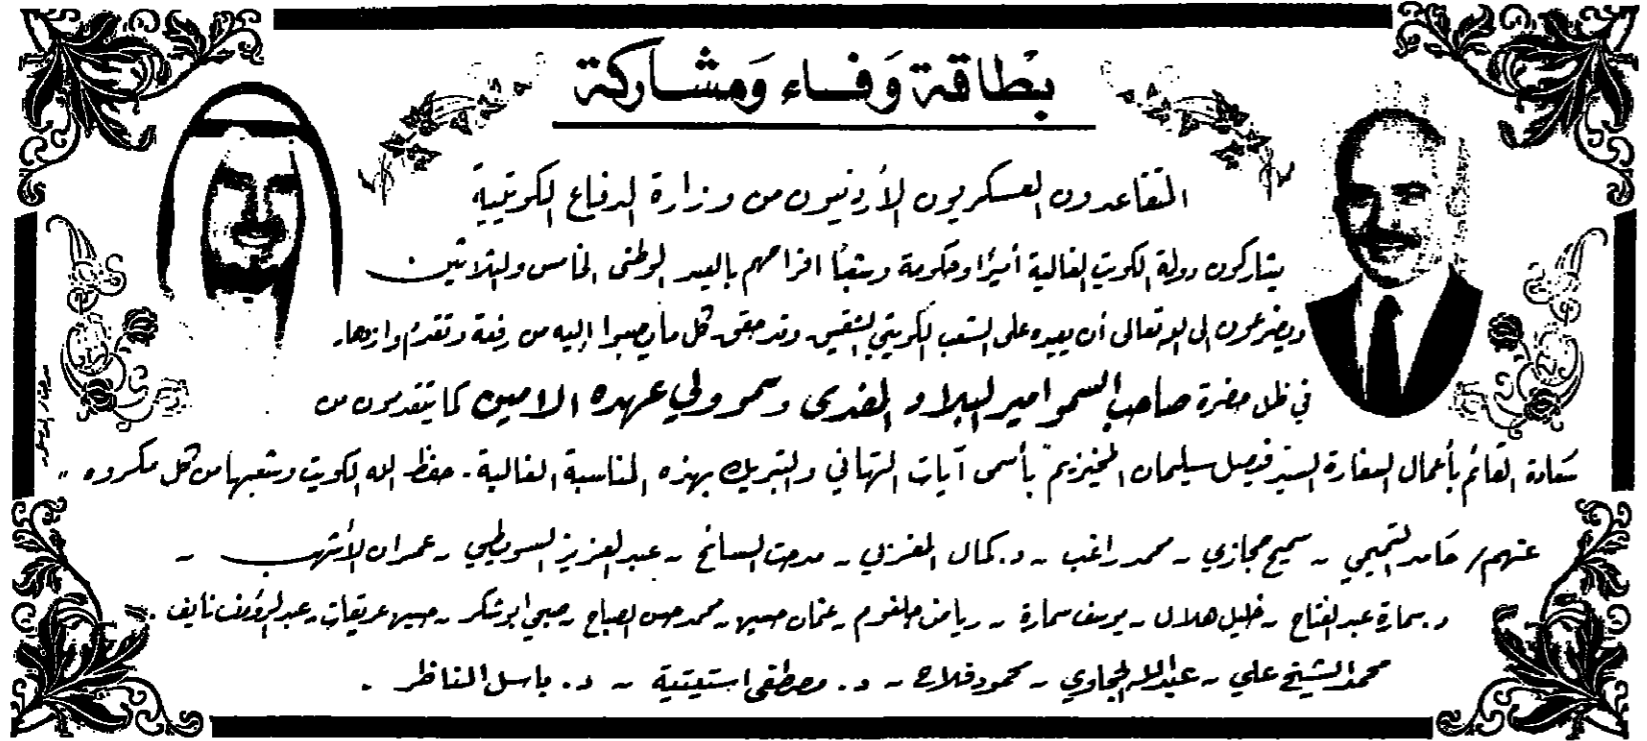 بطاقة وفاء ومشاركة
المتقاعدون العسكريون الأردنيون من وزارة الدفاع الكويتية
يشاركون دولة الكويت الغالية أميرًا وحكومة وشعبًا افراحهم بالعيد الوطني الخامس والثلاثين
ويضرعون الى الله تعالى أن يعيده على الشعب الكويتي الشقيق وقد حقق كل ما يصبوا إليه من رفعة وتقدم وازدهار
في ظل حضرة صاحب السمو امير البلاد المفدى وسمو ولي عهده الامين كما يتقدمون من
سعادة القائم بأعمال السفارة السيد فيصل سليمان المخيزيم بأسمى آيات التهاني والتبريك بهذه المناسبة الغالية. حفظ الله الكويت وشعبها من كل مكروه ،،
عنهم/ حامد التميمي - سميح حجازي - محمد راغب - د. كمال المغربي - مدحت السائح - عبد العزيز السويطي - عمران الأشهب -
د. سمارة عبد الفتاح - خليل هلال - يوسف سمارة - رياض ملغوم - عثمان حسين - محمد حسن الصباح - صبحي ابو شكر - حسين عريقات - عبد الرؤوف نايف .
محمد الشيخ علي - عبد الله الحجاوي - محمود فلاح - د. مصطفى استيتية - د. باسل المناظر .